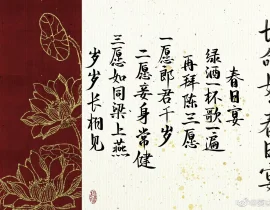 春日宴
绿酒一杯歌一遍
再拜陈三愿
一愿郎君千岁
二愿妾身常健
三愿如同梁上燕
岁岁长相见